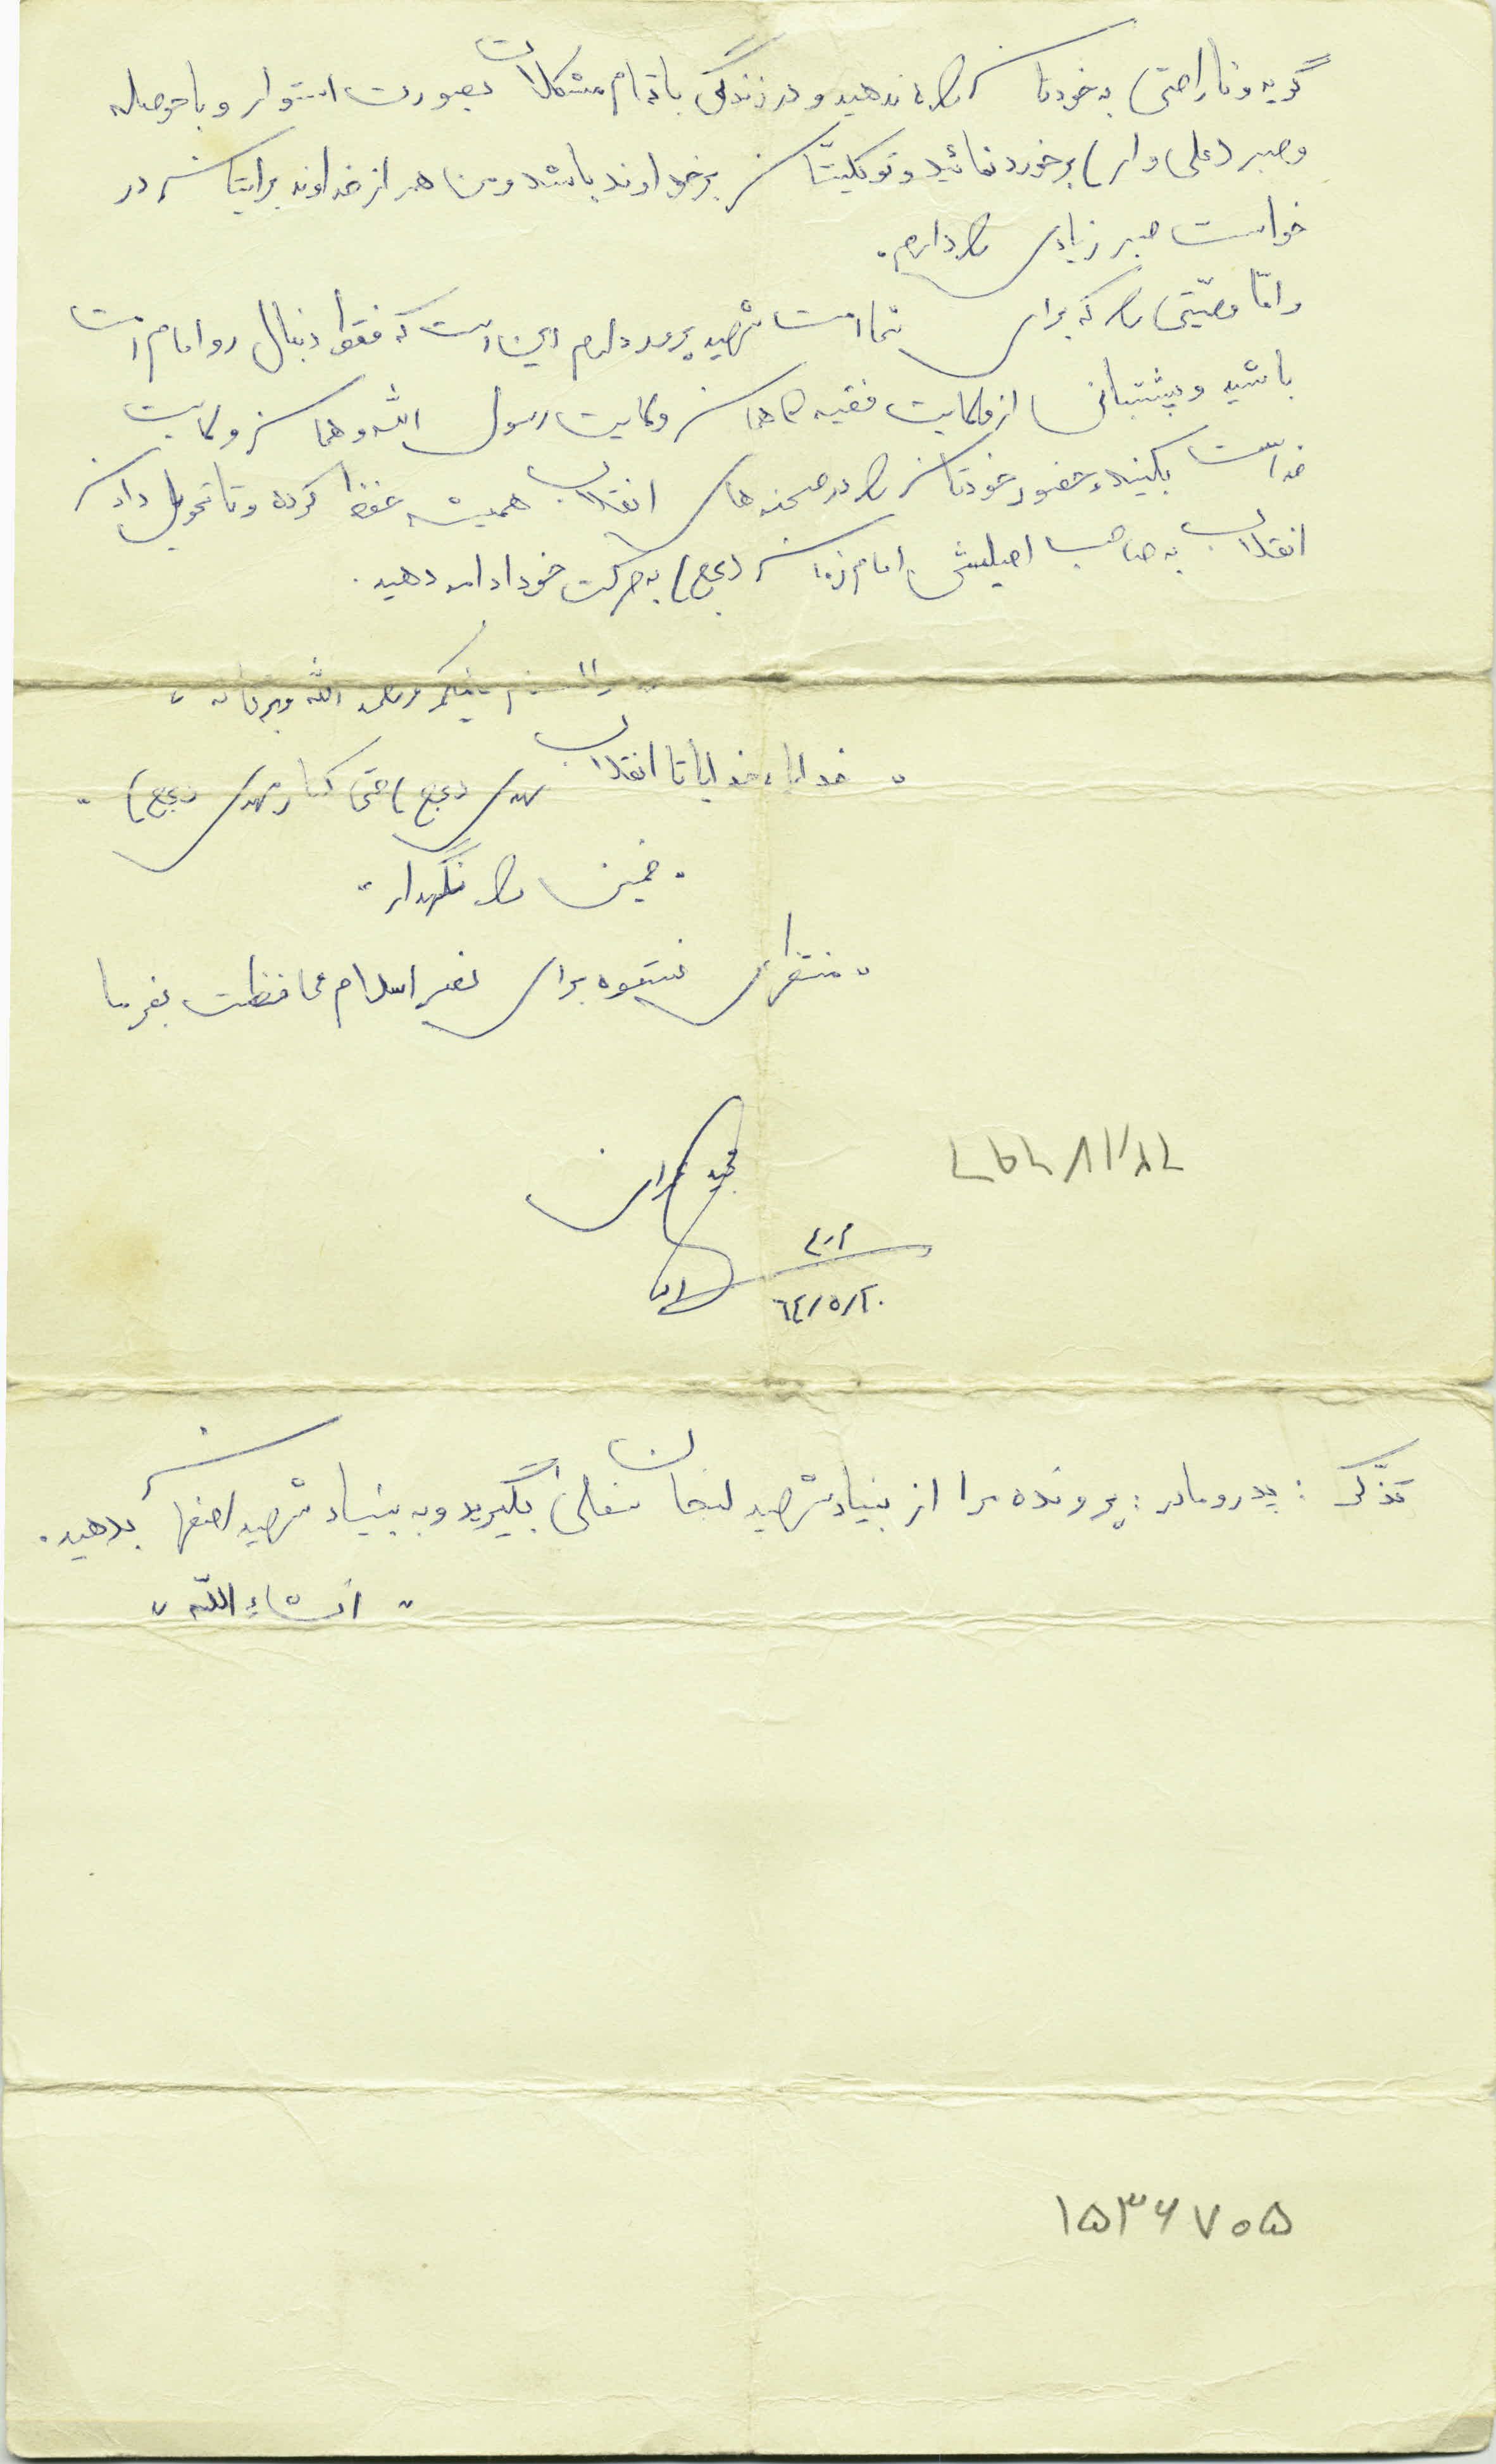 گریه و ناراحتی به خودتان راه ندهید و در زندگی با تمام مشکلات بصورت استوار و با حوصله
و صبر (علی وار) برخورد نمائید و توکلیتان بر خداوند باشد و من هم از خداوند برایتان در
خواست صبر زیادی را دارم.
و امّا وصیّتی را که برای شما امت شهید پرور دارم این است که فقط دنبال رو امام امت
باشید و پشتبانی از ولایت فقیه که همان ولایت رسول الله و همان ولایت
خداست بکنید و حضور خودتان را در صحنه های انقلاب همیشه حفظ کرده و تا تحویل دادن
انقلاب به صاحب اصیلیش امام زمان (عج) به حرکت خود ادامه دهید.
"والسلام علیکم و رحمه الله و برکاته"
"خدایا، خدایا تا انقلاب مهدی (عج) حتی کنار مهدی (عج)"
"خمینی را نگهدار"
"منتظری نستوه برای نصر اسلام محافظت بفرما
مجید
٦٤/٥/٢٠
تذّکر: پدر و مادر: پرونده مرا از بنیاد شهید لنجان سفلی بگیرید و به بنیاد شهید اصفهان بدهید.
"انشاءالله"
۱۵۳۶۷۰۵